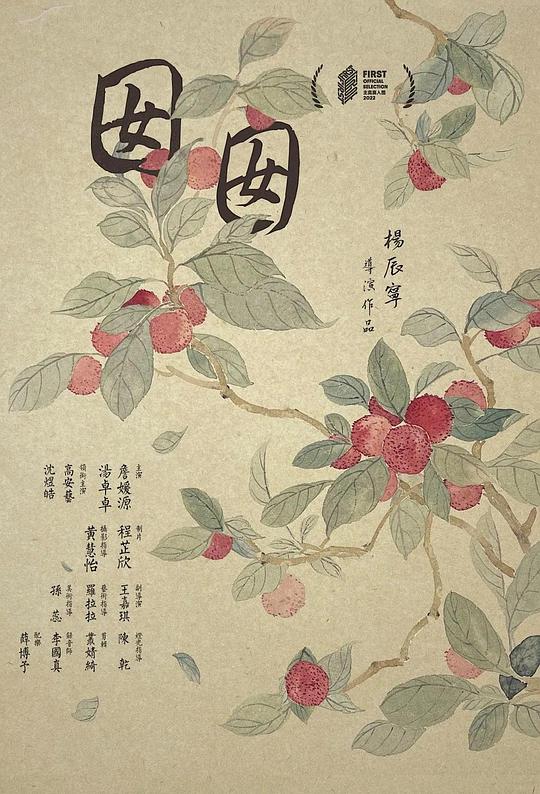 囡囡
FIRST
OFFICIAL
SELECTION
2022
楊辰寧
導演作品
主演
詹媛源
湯卓卓
領銜主演
高安藝
沈煜皓
制片
程芷欣
攝影指導
黃慧怡
副導演
王嘉琪
藝術指導
羅拉拉
美術指導
孫蕊
燈光指導
陳乾
剪輯
錄音師
李國真
配樂
薛博予